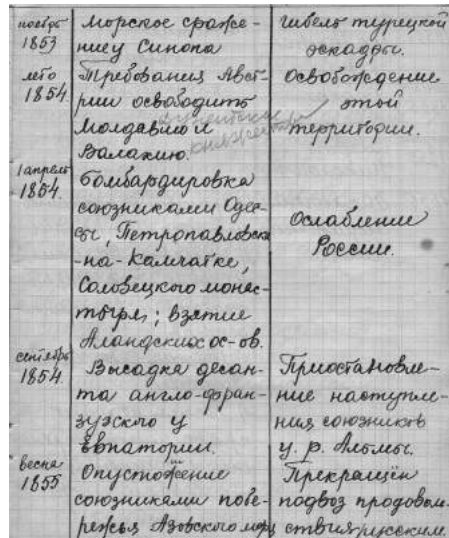 ноябрь
1853
Морское сраже-
ние у Синопа
Гибель турецкой
эскадры.
лето
1854.
Требования Авст-
рии освободить
Молдавию и
Валахию.
княжества
Освобождение
этой
территории.
1 апрель
1854.
Бомбардировка
союзниками Одес-
сы, Петропавловска
-на-Камчатке,
Соловецкого монас-
тыря; взятие
Аландских ос-ов.
Ослабление
России.
сентябрь
1854.
Высадка десан-
та англо-фран-
зузского у
Евпатории.
Приостановле-
ние наступле-
ния союзников
у р. Альмы.
весна
1855
Опустожение
союзниками побе-
режья Азовского моря
Прекращён
подвоз продоволь
ствия русским.